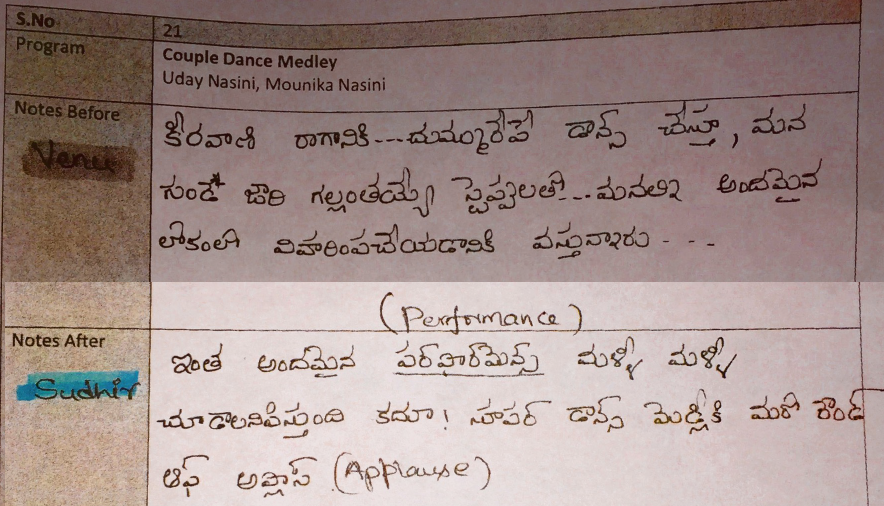 S.No 21
Program Couple Dance Medley
Uday Nasini, Mounika Nasini
Notes Before కీరవాణి రాగానికి...దుమ్మురేపే డాన్స్ చేస్తూ, మన
Venu
గుండె జారి గల్లంతయ్యే స్టెప్పులతో...మనల్ని అందమైన
లోకంలో విహరింపచేయడానికి వస్తున్నారు - - -
(Performance)
Notes After ఇంత అందమైన పర్ఫార్మెన్స్ మళ్ళీ మళ్ళీ
Sudhir
చూడాలనిపిస్తుంది కదూ! సూపర్ డాన్స్ మెడ్లీకి మరో రౌండ్
ఆఫ్ అప్లాస్ (Applause)